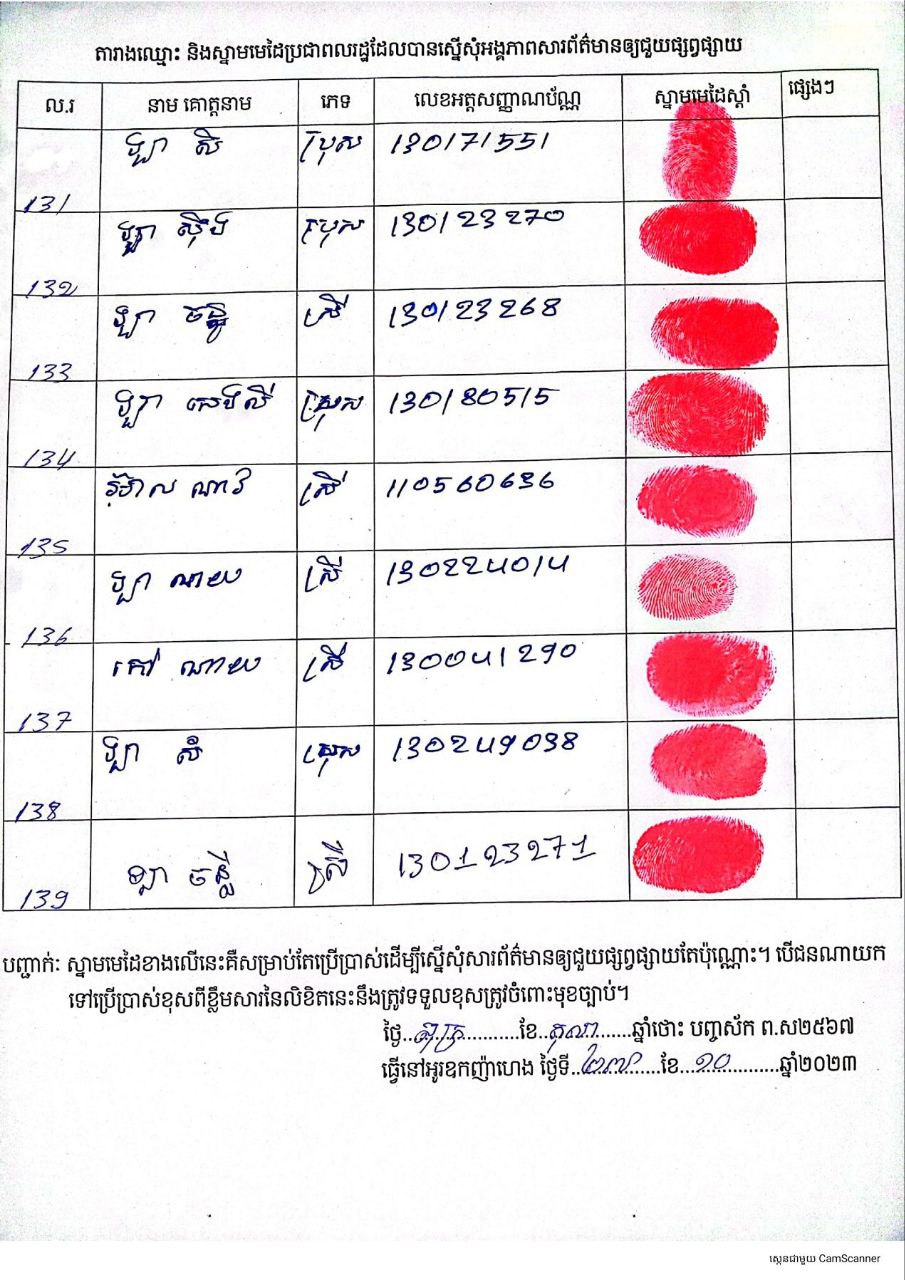 តារាងឈ្មោះ និងស្នាមមេដៃប្រជាពលរដ្ឋដែលបានស្នើសុំអង្គភាពសារព័ត៌មានឲ្យជួយផ្សព្វផ្សាយ
ល.រ នាម គោត្តនាម ភេទ លេខអត្តសញ្ញាណប័ណ្ណ ស្នាមមេដៃស្តាំ ផ្សេងៗ
131 ឡា សិ ប្រុស 130171551
132 ឡា ស៊ីង ប្រុស 130123270
133 ឡា ចន្ធូ ស្រី 130123268
134 ឡា សេងលី ប្រុស 130180515
135 ណាវ ស្រី 110560636
136 ឡា ណាយ ស្រី 130224014
137 កៅ ណាយ ស្រី 130041290
138 ឡា សំ ប្រុស 130249038
139 ឡា ចន្ធី ស្រី 130123271
បញ្ជាក់: ស្នាមមេដៃខាងលើនេះគឺសម្រាប់តែប្រើប្រាស់ដើម្បីស្នើសុំសារព័ត៌មានឲ្យជួយផ្សព្វផ្សាយតែប៉ុណ្ណោះ។ បើជនណាយក
ទៅប្រើប្រាស់ខុសពីខ្លឹមសារនៃលិខិតនេះនឹងត្រូវទទួលខុសត្រូវចំពោះមុខច្បាប់។
ថ្ងៃ..សុក្រ...........ខែ..តុលា.......ឆ្នាំថោះ បញ្ចស័ក ព.ស២៥៦៧
ធ្វើនៅអូរឧកញ៉ាហេង ថ្ងៃទី..២៧.......ខែ...១០...............ឆ្នាំ២០២៣
ស្កេនជាមួយ CamScanner